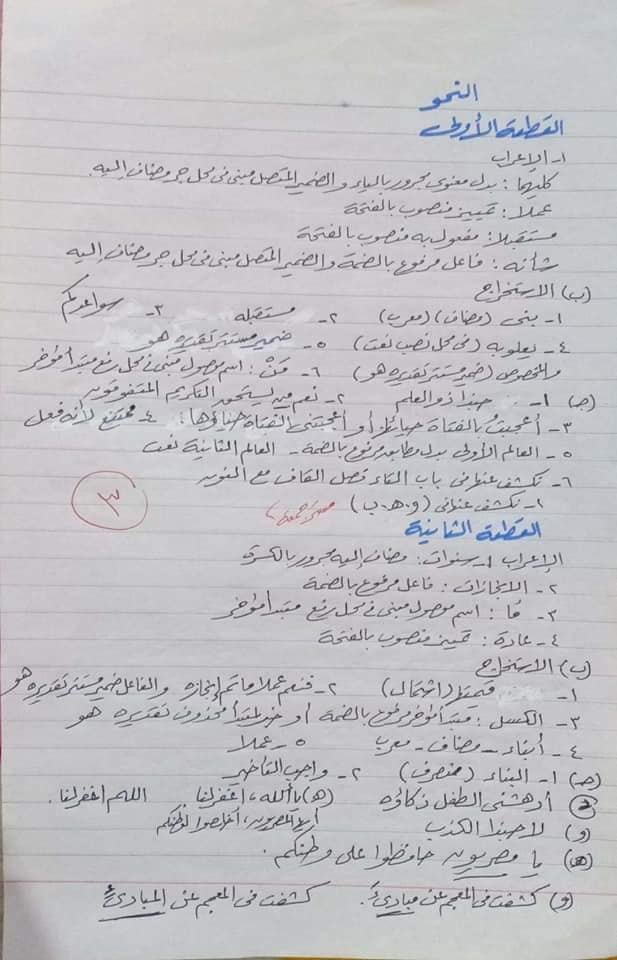 النحو
القطعة الأولى
١- الإعراب
كليهما: بدل معنوي مجرور بالياء والضمير المتصل مبني في محل جر مضاف إليه.
عملا: تمييز منصوب بالفتحة
مستقبلا: مفعول به منصوب بالفتحة
شأنه: فاعل مرفوع بالضمة والضمير المتصل مبني في محل جر مضاف إليه
(ب) الاستخراج
١- بني (مضاف) (معرب) ٢- مستقبله ٣- سواعدكم
٤- يعلو به (في محل نصب نعت) ٥- ضمير مستتر تقديره هو
والمخصوص (ضمير مستتر تقديره هو) ٦- مَنْ: اسم موصول مبني في محل رفع مبتدأ مؤخر
(جـ) ١- حبذا ذو العلم ٢- نعم من يستحق التكريم المتفوقون
٣- أعجبتُ بالفتاة حيائها أو أعجبتني الفتاة حياؤها. ٤- ممتنع لأنه فعل
٥- العالم الأولى بدل مطابق مرفوع بالضمة - العالم الثانية نعت
٦- نكشف عنها في باب التاء فصل القاف مع النون
١- نكشف عنها في (و.هـ.ب)
٣
القطعة الثانية
الإعراب ١- سنوات: مضاف إليه مجرور بالكسرة
٢- الإنجازات: فاعل مرفوع بالضمة
٣- مَا: اسم موصول مبني في محل رفع مبتدأ مؤخر
٤- عادة: تمييز منصوب بالفتحة
ب) الاستخراج
١- قيمتها (اشتمال) ٢- فنعم عملا ما تم إنجازه والفاعل ضمير مستتر تقديره هو
٣- الكسل: مبتدأ مؤخر مرفوع بالضمة أو خبر لمبتدأ محذوف تقديره هو
٤- أبناء - مضاف - معرب ٥- عملا
(جـ) ١- البناء (منصرف) ٢- واجب التأخير
(د) أدهشني الطفل ذكاؤه (هـ) يا ألله، اغفر لنا. اللهم اغفر لنا.
(و) لا حبذا الكذب أيها المصريون، أخلصوا لوطنكم
(هـ) يا مصريون حافظوا على وطنكم.
(و) كشفت في المعجم عن مبادئَ. كشفت في المعجم عن المبادئِ